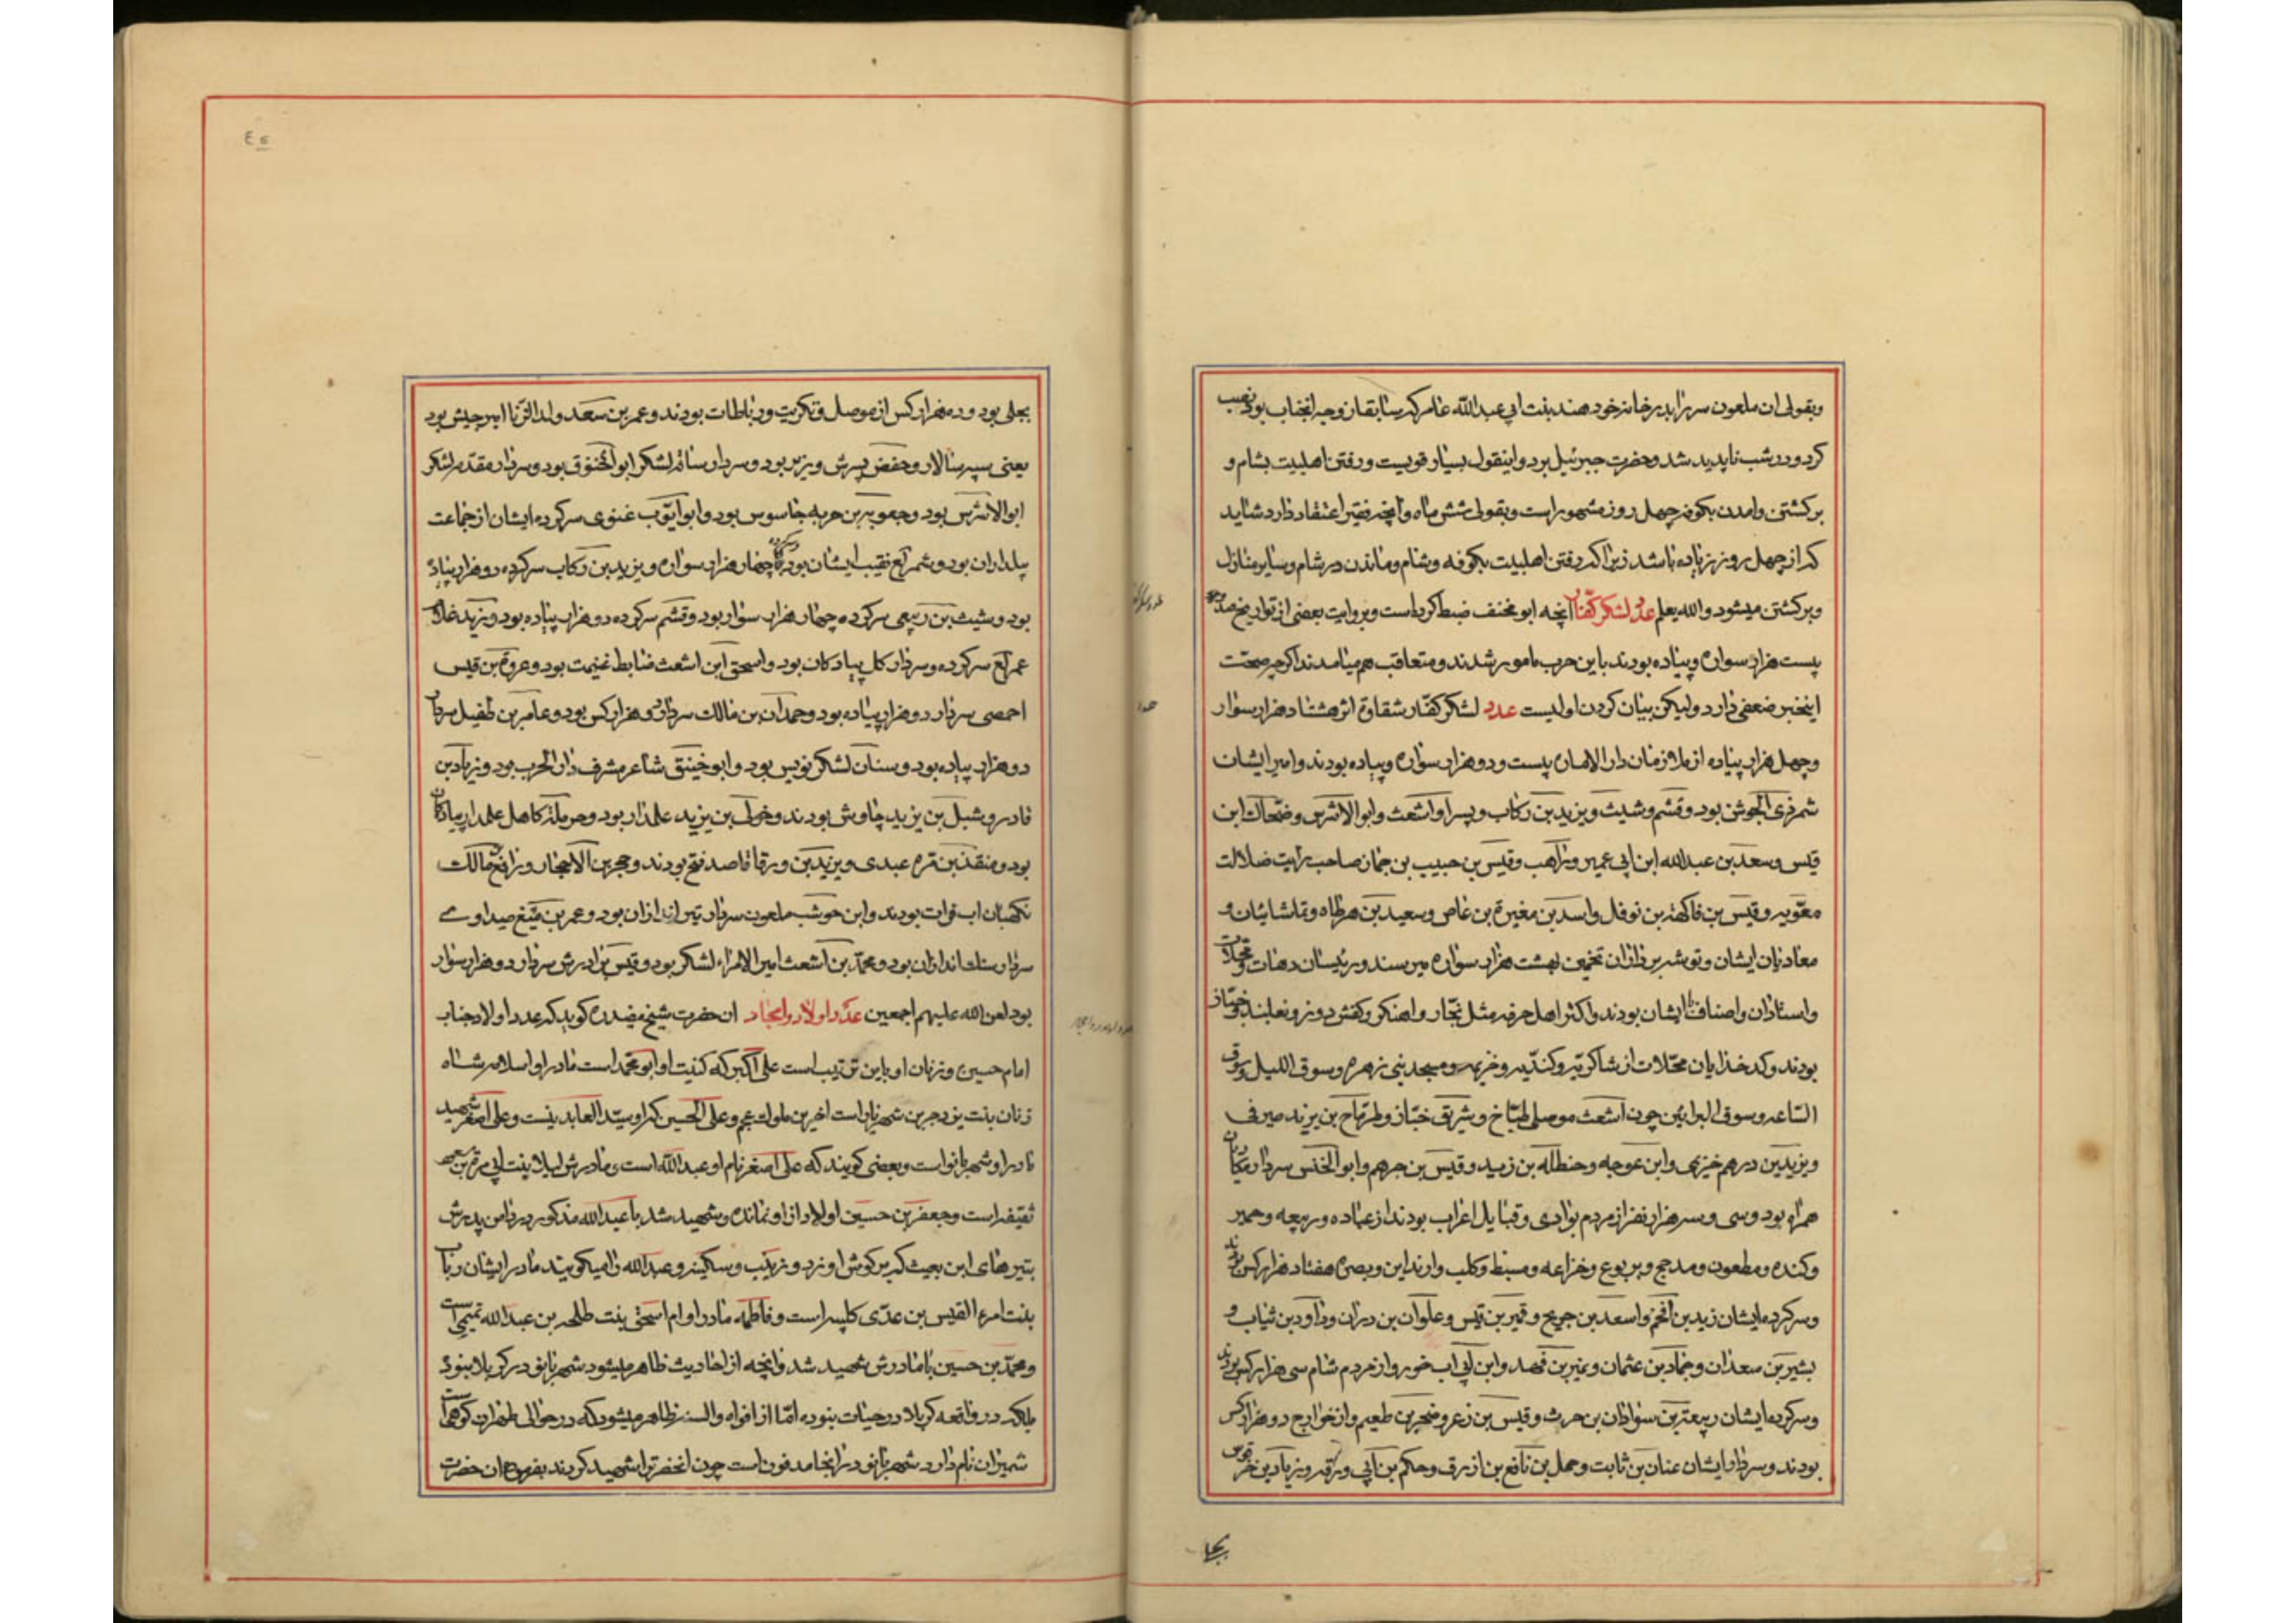 وبقولی ان ملعون سر را بدر خانه خود هند بنت ابی عبدالله عامر که سابقا زوجه انجناب بود نصب
کرد و در شب ناپدید شد و حضرت جبرئیل برد و اینقول بسیار قویست و رفتن اهلبیت بشام و
برکشتن و امدن بکوفه چهل روز مشهور است و بقولی شش ماه و آنچه فقیر اعتقاد دارد شاید
که از چهل روز زیاده باشد زیرا که رفتن اهلبیت بکوفه و شام و ماندن در شام و سایر منازل
و برکشتن میشود والله یعلم عدد لشکر کفار انچه ابو مخنف ضبط کرده است و بروایت بعضی از تواریخ صد
بیست هزار سواره و پیاده بودند باین حرب مامور شدند و متعاقب هم میامدند اکرچه صحت
اینخبر ضعفی دارد ولیکن بیان کردن اولیست عدد لشکر کفار شقاوة اثر هشتاد هزار سوار
و چهل هزار پیاده از ملازمان دار الاماره بیست و دو هزار سواره و پیاده بودند و امیر ایشان
شمر ذی الجوشن بود و قشم و شیث و یزید بن رکاب و پسر او اشعث و ابو الاشرس و ضحاک ابن
قیس و سعد بن عبدالله ابن ابی عمیر و راهب و قیس بن حبیب بن جمان صاحب رایت ضلالت
معویه و قیس بن فاکهة بن نوفل و اسد بن مغیرة بن عاص و سعید بن هرطاه و تماشائیان و
معادیان ایشان بهشت هزار سواره میرسند و رئیسان دهات و محلات
و استادان و اصناف ایشان بودند و اکثر اهل حرفه مثل نجار و اهنکر و کفش دوز و نعلبند و خباز
بودند و کدخدایان محلات از شاکریه و کندیه و خزیمه و مسجد بنی زهره و سوق اللیل و سوق
الساعه و سوق البراثین چون اشعث موصلی طباخ و شریق خباز و طرماح بن یزید صیرفی
و یزید بن درهم خیزی و ابن عوجه و حنطله بن زبید و قیس بن جرهم و ابو الخنس سردار
همراه بود و سی و سه هزار نفر از مردم بوادی و قبایل اعراب بودند از عباده و ربیعه و حمیر
و کنده و مطعون و مدحج و یربوع و خزاعه و مسبط و کلب و بصره هفتاد هزار کس بودند
و سرکرده ایشان زید بن افخم و اسعد بن جریح و قمیر بن قیس و علوان بن دران و داود بن ثیاب و
بشیر بن سعدان و حماد بن عثمان و نمیر بن فهد و ابن ابی اب خور و از مردم شام سی هزار کس بودند
و سرکرده ایشان ربیعة بن سوادان بن حرث و قیس بن زعر و ضحر بن طعیم و از خوارج دو هزار کس
بودند و سردار ایشان عنان بن ثابت و حمل بن نافع بن ازرق و حکم بن ابی ورقه و زیاد بن
بجلی
بجلی بود و ده هزار کس از موصل و تکریت و رباطات بودند و عمر بن سعد ولد الزنا امیر جیش بود
یعنی سپه سالار و حفض پسرش وزیر بود و سردار ساقه لشکر ابو الخنوق بود و سردار مقدمه لشکر
ابو الاشرس بود و جعویه بن حربه جاسوس بود و ابو ایوب غنوی سرکرده ایشان از جماعت
بیلداران بود و شمر لع نقیب ایشان بود و سرکرده چهار هزار سواره و یزید بن رکاب سرکرده دو هزار پیاده
بود و شیث بن ربعی سرکرده چهار هزار سوار بود و قشم سرکرده دو هزار پیاده بود و یزید غلام
عمر لع سرکرده و سردار کل پیادکان بود و اسحق ابن اشعث ضابط غنیمت بود و عروة بن قیس
احمصی سردار دو هزار پیاده بود و حمدان بن مالک سردار دو هزار کس بود و عامر بن طفیل سردار
دو هزار پیاده بود و سنان لشکر نویس بود و ابو خینق شاعر مشرف دار الحرب بود و زیاد بن
قادر و شبل بن یزید چاوش بودند و خولی بن یزید علمدار بود و حرمله کاهل علمدار پیادکان
بود و منقذ بن قره عبدی و یزید بن ورقا قاصد فتح بودند و حجر بن الاحجار و رافع مالک
نکهبان اب فرات بودند و ابن حوشب ملعون سردار تیر اندازان بود و عمر بن صیداوی
سردار سنک اندازان بود و محمد بن اشعث امیر الامراء لشکر بود و قیس برادرش سردار دو هزار سوار
بود لعن الله علیهم اجمعین عدد اولاد و امجاد ان حضرت شیخ مفید ره کوید که عدد اولاد جناب
امام حسین ع و زنان او باین ترتیب است علی اکبر که کنیت او ابو محمد است مادر او اسلامه شاه
زنان بنت یزدجرد بن شهریار است اخرین ملوک عجم و علی الحسین که او سید العابدینست و علی اصغر شهید
مادر او شهربانو است و بعضی کویند که علی اصغر نام او عبدالله است و مادرش لیلا بنت ابی مرة بن
ثقیفه است و جعفر بن حسین اولاد از او نمانده و شهید شد با عبدالله مذکور در دامن پدرش
بتیرهای ابن بعیث که بر کوش او زد و زینب و سکینه و عبدالله را میکویند مادر ایشان رباب
بنت امرء القیس بن عدی کلبیه است و فاطمه مادر او ام اسحق بنت طلحه بن عبدالله تمیمی است
و محمد بن حسین با مادرش شهید شد و انچه از احادیث ظاهر میشود شهربانو در کربلا نبود
بلکه در واقعه کربلا در حیات نبوده اما از افواه و السنه ظاهر میشود که در حوالی طهران کوهی است
شمیران نام دارد شهربانو در انجا مدفون است چون انحضرت را شهید کردند بفرموده ان حضرت